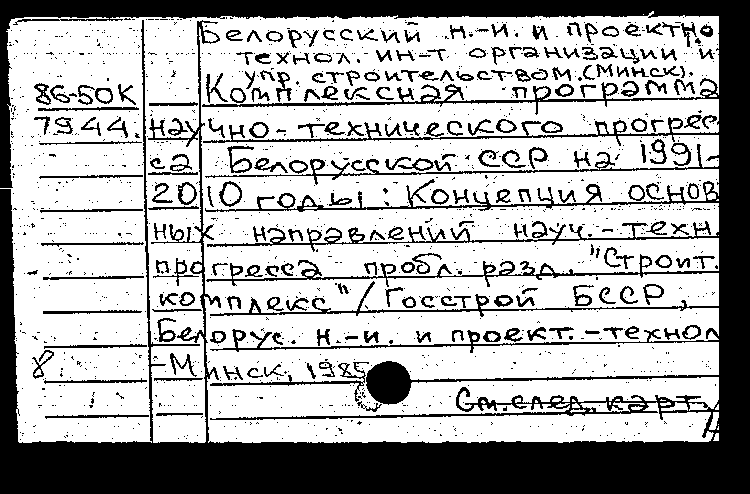 Белорусский н.-и. и проектно
технол. ин-т организации и
упр. строительством (Минск).
86-50К Комплексная программа
7944. научно-технического прогрес
са Белорусской ССР на 1991-
2010 годы: Концепция основ
ных направлений науч.-техн.
прогресса пробл. разд. "Строит.
комплекс" / Госстрой БССР,
Белорус. н.-и. и проект.-технол
8 -Минск, 1985
См. след. карт.